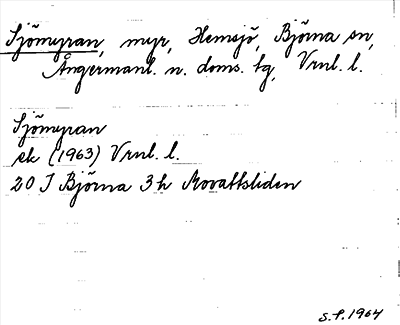 Sjömyran, myr, Hemsjö, Björna sn,
Ångermanl. n. doms. tg, Vrnl. l.
Sjömyran
ek (1963) Vrnl. l.
20 I Björna 3 h Movattsliden
S.P. 1964